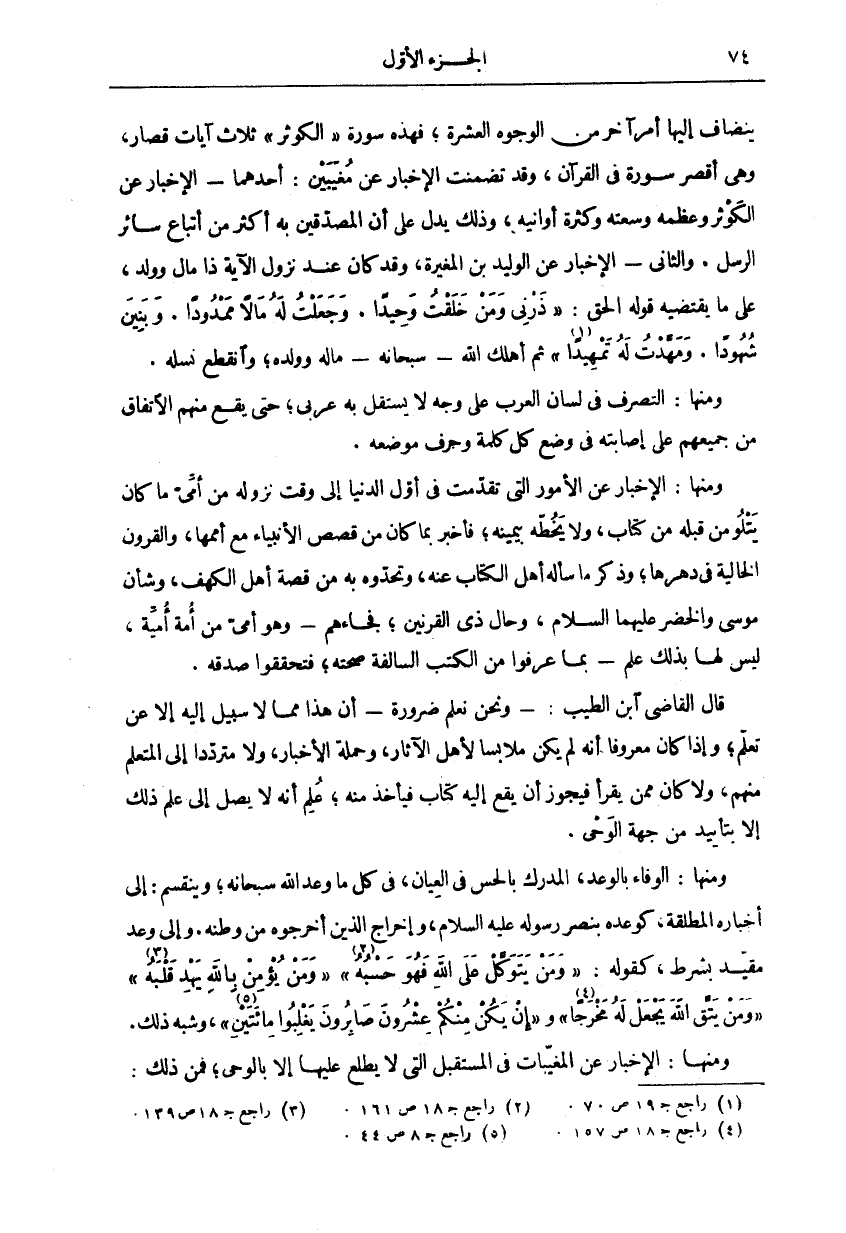 ٧٤ الجزء الأول
ينضاف إليها أمر آخر من الوجوه العشرة ؛ فهذه سورة « الكوثر » ثلاث آيات قصار،
وهى أقصر سورة فى القرآن ، وقد تضمنت الإخبار عن مُغَيَّبَيْن : أحدهما — الإخبار عن
الكَوْثر وعظمه وسعته وكثرة أوانيه، وذلك يدل على أن المصدّقين به أكثر من أتباع سائر
الرسل . والثانى — الإخبار عن الوليد بن المغيرة، وقد كان عند نزول الآية ذا مال وولد ،
على ما يقتضيه قوله الحق : « ذَرْنِى وَمَنْ خَلَقْتُ وَحِيدًا . وَجَعَلْتُ لَهُ مَالًا مَمْدُودًا . وَبَنِينَ
شُهُودًا . وَمَهَّدْتُ لَهُ تَمْهِيدًا (١) » ثم أهلك الله — سبحانه — ماله وولده؛ وآنقطع نسله .
ومنها : التصرف فى لسان العرب على وجه لا يستقل به عربى؛ حتى يقع منهم الآتفاق
من جميعهم على إصابته فى وضع كل كلمة وحرف موضعه .
ومنها : الإخبار عن الأمور التى تقدّمت فى أوّل الدنيا إلى وقت نزوله من أمّىّ ما كان
يَتْلُو من قبله من كتاب، ولا يَخُطّه بيمينه؛ فأخبر بما كان من قصص الأنبياء مع أممها، والقرون
الخالية فى دهرها؛ وذكر ما سأله أهل الكتاب عنه، وتحدّوه به من قصة أهل الكهف، وشأن
موسى والخضر عليهما السلام ، وحال ذى القرنين ؛ فجاءهم — وهو أمىّ من أُمة أُمِّيَّة ،
ليس لها بذلك علم — بما عرفوا من الكتب السالفة صحته؛ فتحققوا صدقه .
قال القاضى آبن الطيب : — ونحن نعلم ضرورة — أن هذا مما لا سبيل إليه إلا عن
تعلّم؛ وإذا كان معروفا أنه لم يكن ملابسا لأهل الآثار، وحملة الأخبار، ولا متردّدا إلى المتعلم
منهم، ولا كان ممن يقرأ فيجوز أن يقع إليه كتاب فيأخذ منه ؛ عُلِم أنه لا يصل إلى علم ذلك
إلا بتأييد من جهة الوَحْى .
ومنها : الوفاء بالوعد، المدرك بالحس فى العِيان، فى كل ما وعد الله سبحانه؛ وينقسم : إلى
أخباره المطلقة، كوعده بنصر رسوله عليه السلام، وإخراج الذين أخرجوه من وطنه . وإلى وعد
مقيّد بشرط ، كقوله : « وَمَنْ يَتَوَكَّلْ عَلَى اللهِ فَهُوَ حَسْبُهُ (٢) » « وَمَنْ يُؤْمِنْ بِاللهِ يَهْدِ قَلْبَهُ (٣) »
«وَمَنْ يَتَّقِ اللهَ يَجْعَلْ لَهُ مَخْرَجًا (٤)» و «إِنْ يَكُنْ مِنْكُمْ عِشْرُونَ صَابِرُونَ يَغْلِبُوا مِائَتَيْنِ (٥)»، وشبه ذلك.
ومنها : الإخبار عن المغيّبات فى المستقبل التى لا يطلع عليها إلا بالوحى؛ فمن ذلك :
(١) راجع جـ ١٩ ص ٧٠ . (٢) راجع جـ ١٨ ص ١٦١ . (٣) راجع جـ ١٨ ص ١٣٩ .
(٤) راجع جـ ١٨ ص ١٥٧ . (٥) راجع جـ ٨ ص ٤٤ .